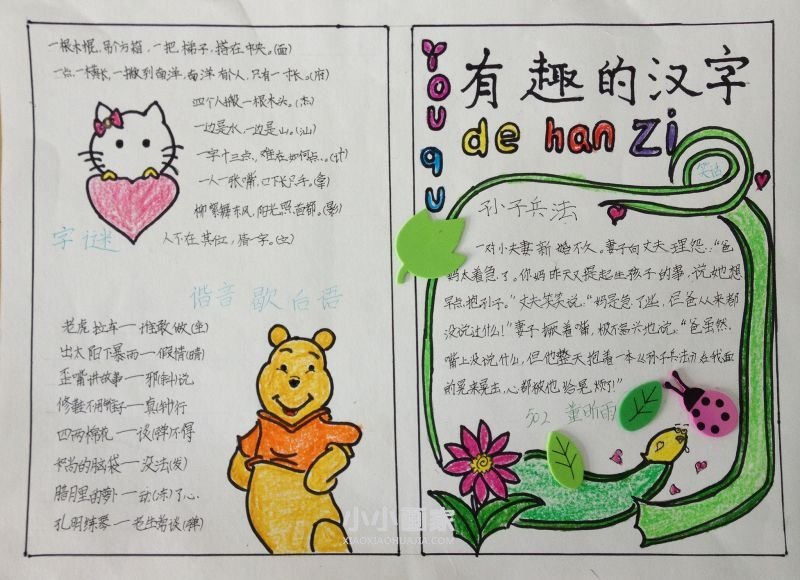 一根木棍,吊个方箱,一把梯子,搭在中央。(面)
一点一横长,一撇到南洋,南洋有个人,只有一寸长。(府)
四个人搬一根木头。(杰)
一边是水,一边是山。(汕)
一字十三点,难在如何点。(汁)
一人一张嘴,口下长只手。(拿)
柳絮舞东风,阳光照首都。(影)
人不在其位,猜一字。(立)
字谜
谐音歇后语
老虎拉车—谁敢做(坐)
出太阳下暴雨—假情(晴)
歪嘴讲故事—邪(斜)说
修鞋不用锥子—真(针)行
四两棉花—谈(弹)不得
和尚的脑袋—没法(发)
腊月里的萝卜—动(冻)了心
孔明练琴—老生常谈(弹)
有趣的汉字
YOU qu
de han Zi
笑话
孙子兵法
一对小夫妻新婚不久。妻子向丈夫埋怨:“爸
妈太着急了。你妈昨天又提起生孩子的事,说她想
早点抱孙子。”丈夫笑笑说:“妈是急了些,但爸从来都
没说过什么!”妻子撅着嘴,极不高兴地说:“爸虽然
嘴上没说什么,但他整天抱着一本《孙子兵法》在我面
前晃来晃去,心都被他给晃烦了!”
502 董昕雨
小小画家
XIAOXIAOHUAJIA.COM